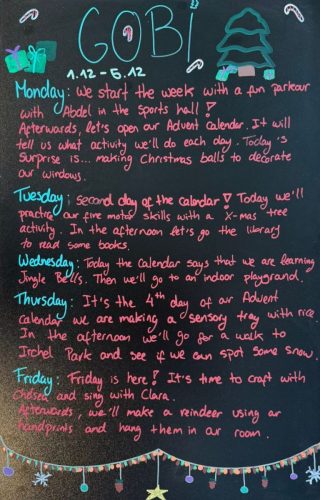 GOBI
1.12 - 5.12
Monday: We start the week with a fun parkour
with Abdel in the sports hall!
Afterwards, let's open our Advent Calendar. It will
tell us what activity we'll do each day. Today's
Surprise is... making Christmas balls to decorate
our windows.
Tuesday: Second day of the calendar! Today we'll
practice our fine motor skills with a X-mas tree
activity. In the afternoon let's go the library
to read some books.
Wednesday: Today the Calendar says that we are learning
Jingle Bells. Then we'll go to an indoor playground.
Thursday: It's the 4th day of our Advent
calendar we are making a sensory tray with rice.
In the afternoon we'll go for a walk to
Irchel Park and see if we can spot some snow.
Friday: Friday is here! It's time to craft with
Chelsea and sing with Clara.
Afterwards, we'll make a reindeer using our
handprints and hang them in our room.